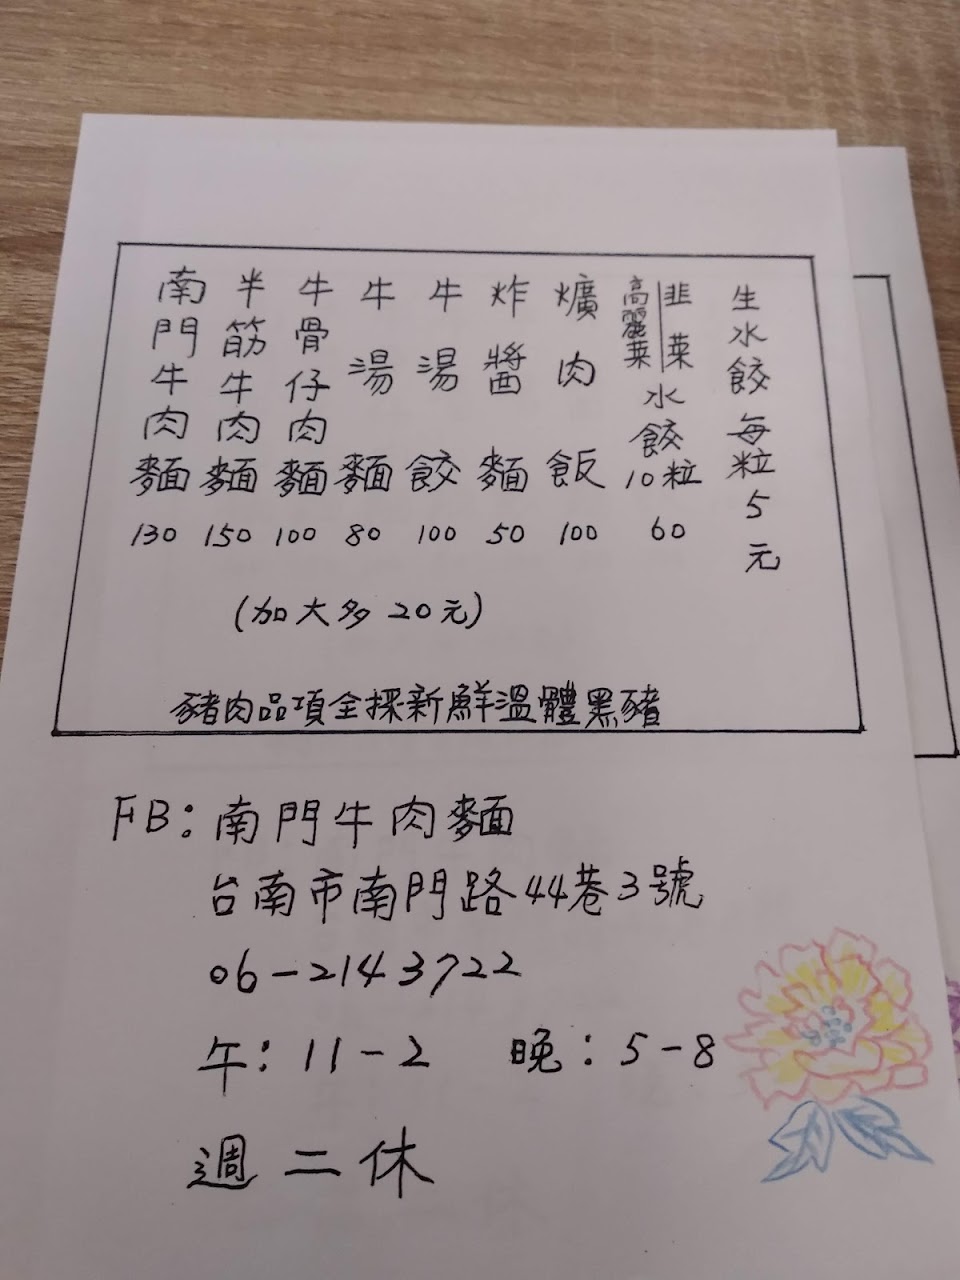 南門牛肉麵 130
半筋牛肉麵 150
牛骨仔肉麵 100
牛湯麵 80
牛湯餃 100
炸醬麵 50
爌肉飯 100
高麗菜|韭菜水餃10粒 60
生水餃每粒5元
(加大多20元)
豬肉品項全採新鮮溫體黑豬
FB:南門牛肉麵
台南市南門路44巷3號
06-2143722
午:11-2 晚:5-8
週二休